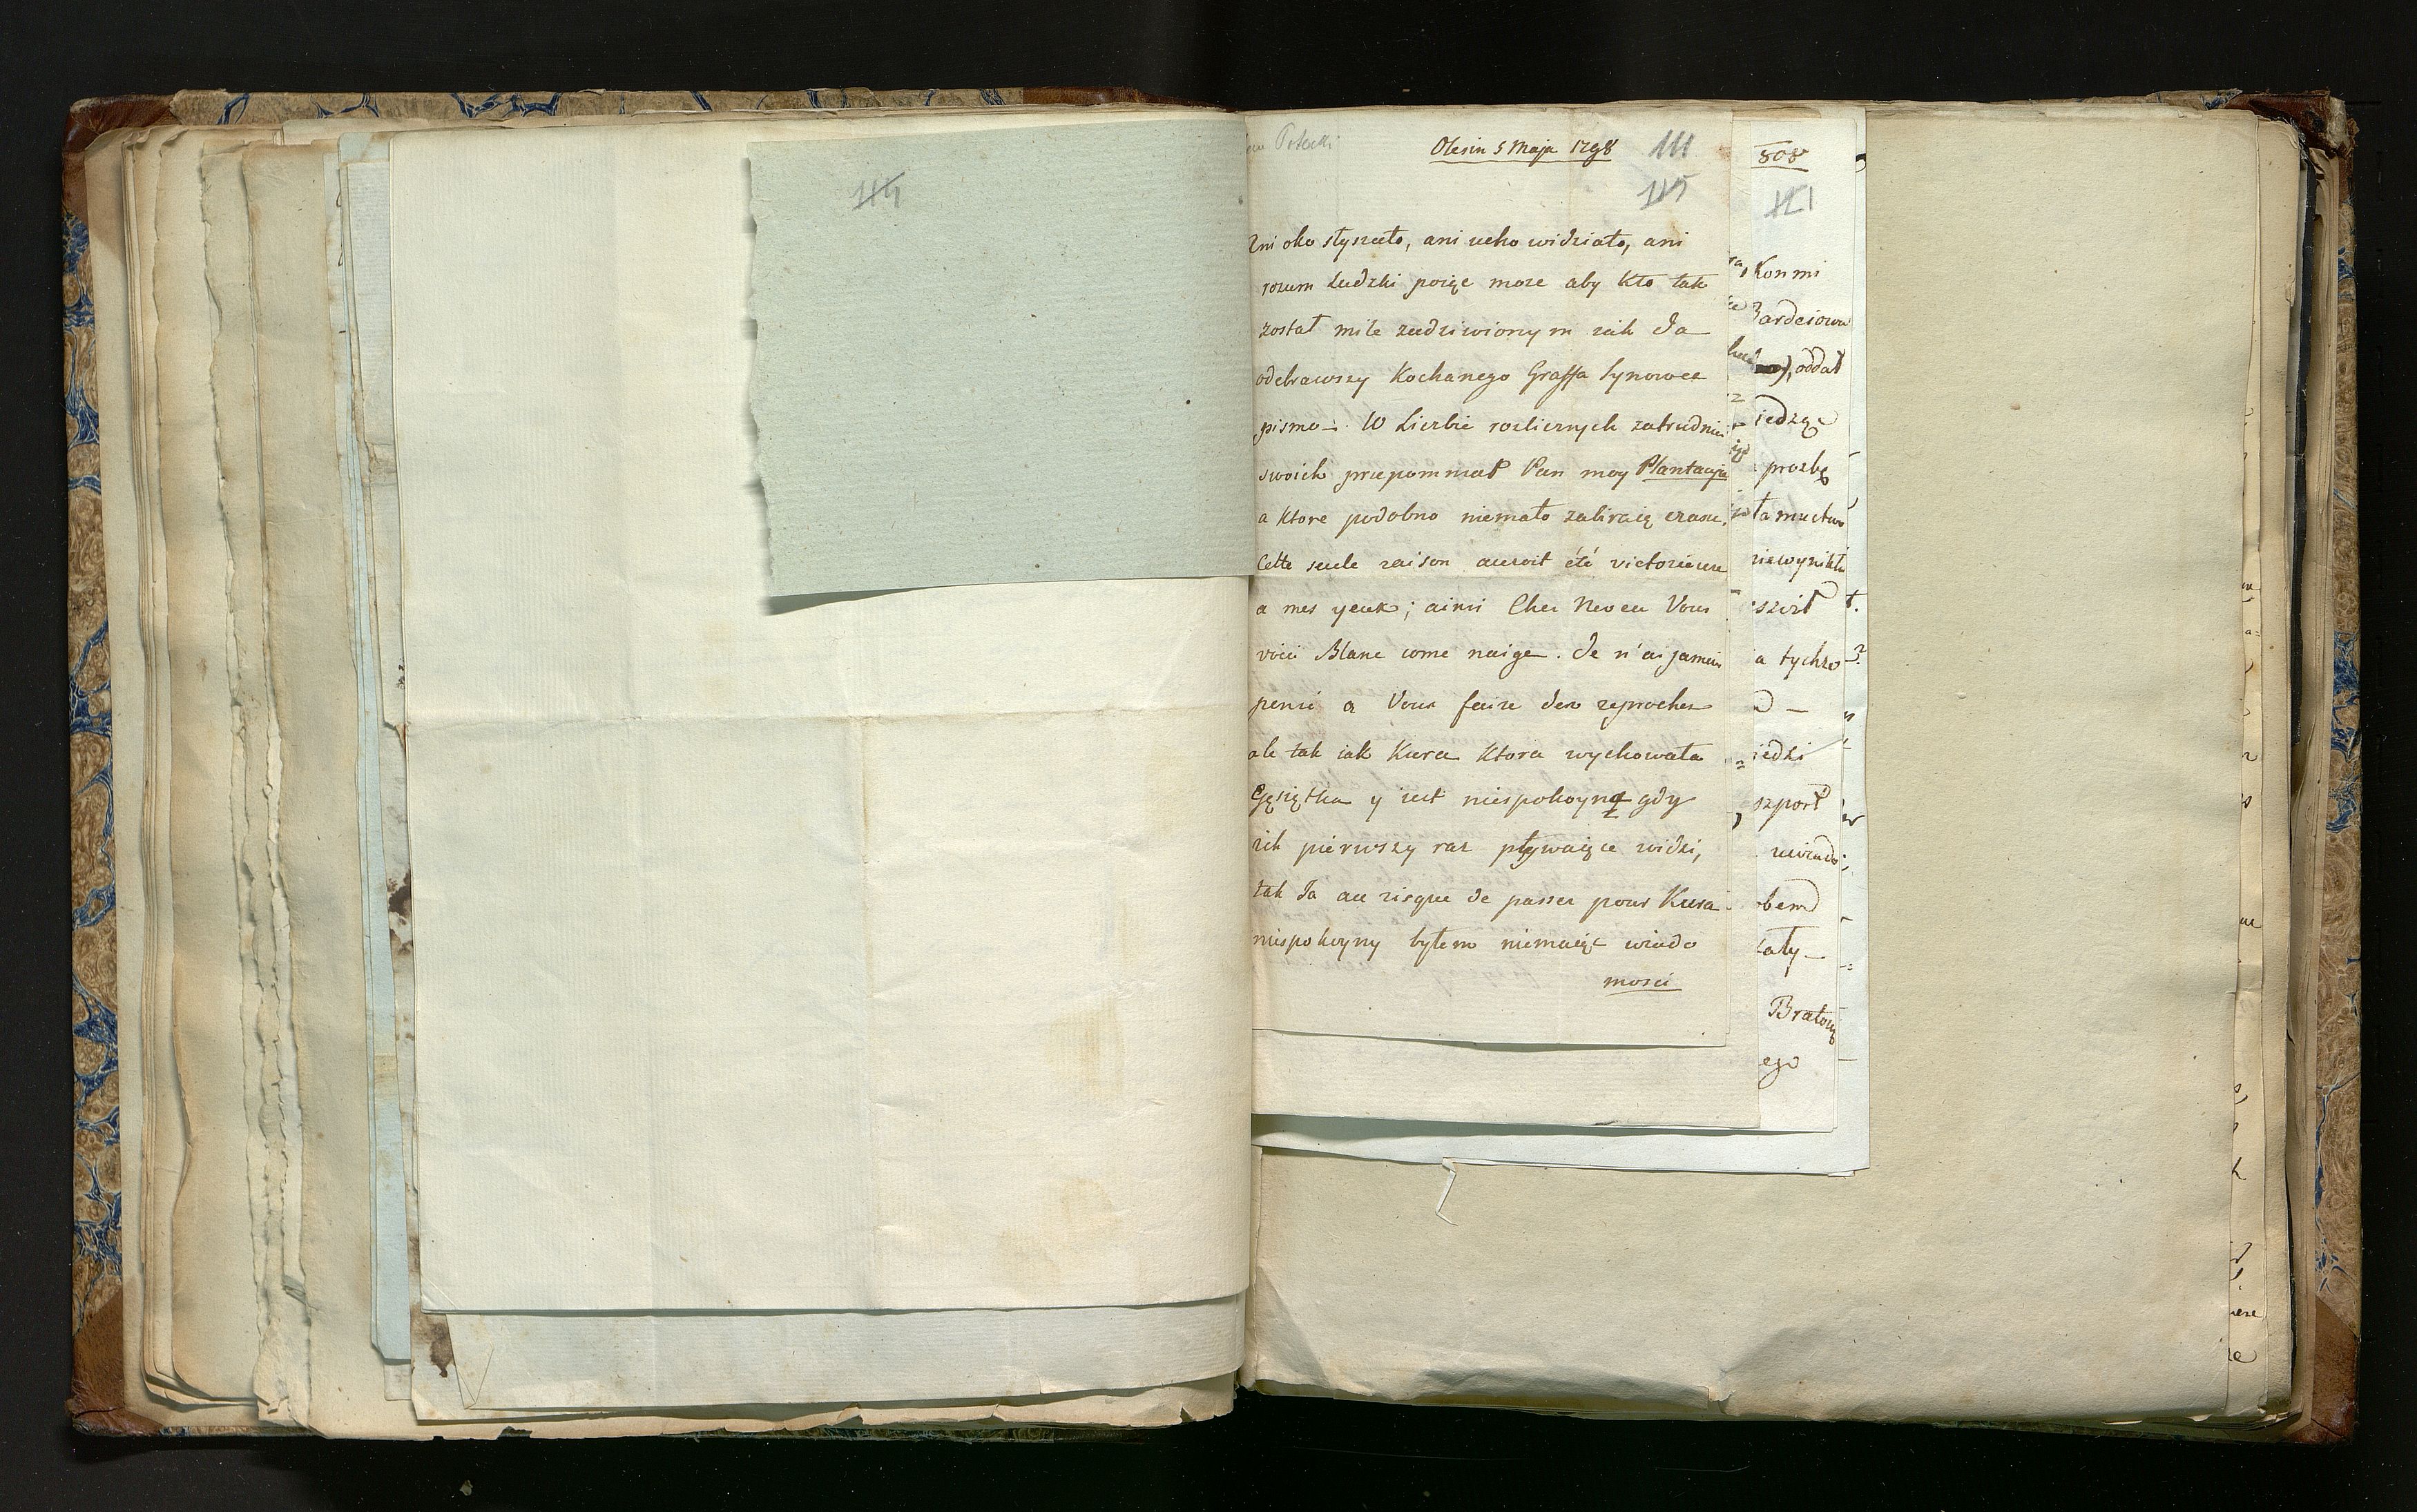 114
Potocki
Olesin 5 Maja 1798
111
115
Ani oko słyszało, ani ucho widziało, ani
rozum Ludzki poiąc moze aby kto tak
został mile zadziwionym iak Ja
odebrawszy Kochanego Graffa Synowca
pismo –. W Liczbie rozlicznych zatrudnień
swoich przepomniał Pan moy Plantacyie
a ktore podobno niemało zabiraią czasu,
Cette seule raison auroit été victorieuse
a mes yeux; ainsi Cher Neveu Vous
voici Blanc come naige. Je n'ai jamais
pensé a Vous faire des reproches
ale tak iak Kura ktora wychowała
Gęsiątka y iest niespokoyną gdy
ich pierwszy raz pływaiące widzi,
tak Ja au risque de passer pour Kura
niespokoyny byłem niemaiąc wiado
mosci
808
121
Konmi
Bardeiowa
), oddał
iedząc
prozbę
tamectwo
niewynikło
szedł
a tychze
iedzi
szport
uwiado
obem
cały –
Bratow
ego